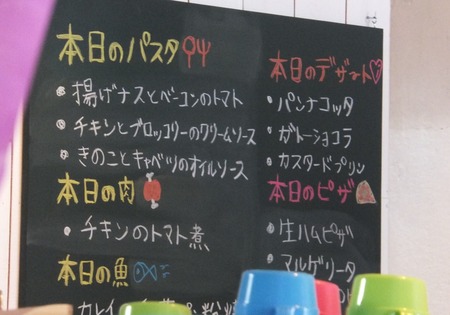 本日のパスタ
・揚げナスとベーコンのトマト
・チキンとブロッコリーのクリームソース
・きのことキャベツのオイルソース
本日の肉
・チキンのトマト煮
本日の魚
カレイ
本日のデザート
・パンナコッタ
・ガトーショコラ
・カスタードプリン
本日のピザ
・生ハムピザ
マルゲリータ